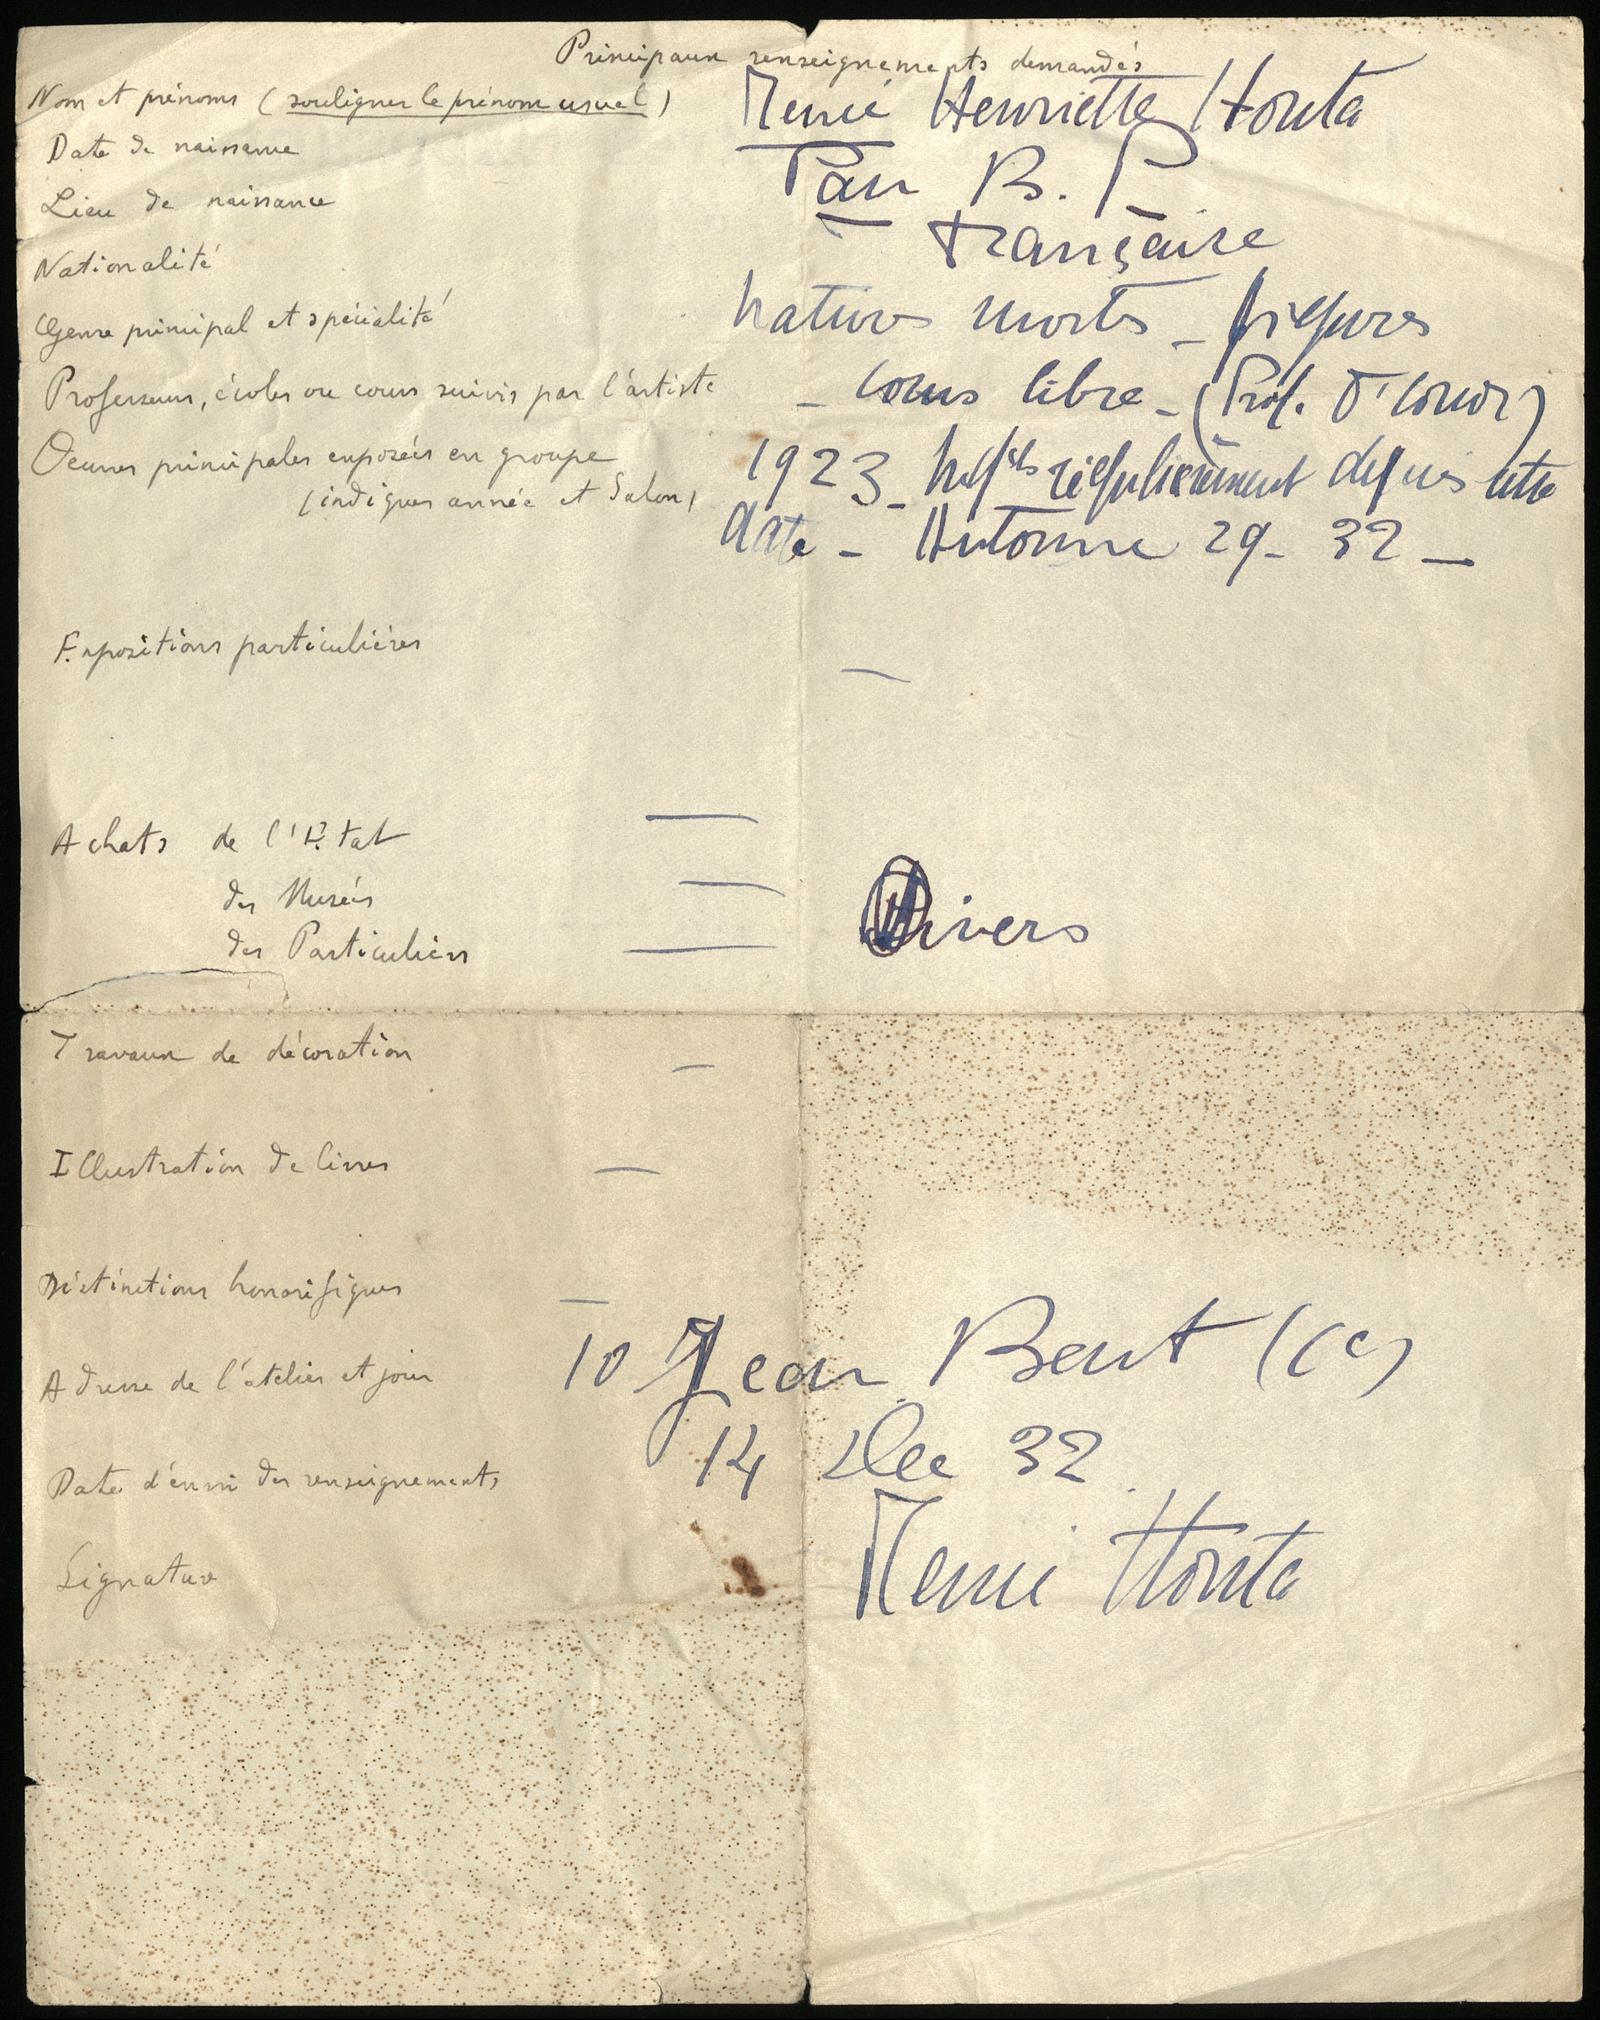 Principaux renseignements demandés
Nom et prénoms (souligner le prénom usuel) Renée Henriette Houta
Date de naissance
Lieu de naissance Pau B. P.
Nationalité Française
Genre principal et spécialité natures mortes - figures
Professeurs, écoles ou cours suivis par l'artiste - Cours libre - (Prof. O'Conor)
Oeuvres principales exposées en groupe 1923 - régulièrement depuis cette
(indiquer année et Salon) date - Automne 29 - 32 -
Expositions particulières -
Achats de l'Etat -
des Musées -
des Particuliers - Divers
Travaux de décoration -
Illustration de livres -
Distinctions honorifiques -
Adresse de l'atelier et jour 10 Jean Bart (6e)
Date d'envoi des renseignements 14 Dec 32
Signature Renée Houta